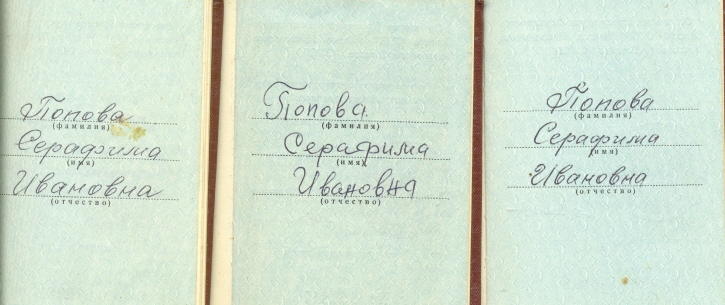 Попова
(фамилия)
Серафима
(имя)
Ивановна
(отчество)
Попова
(фамилия)
Серафима
(имя)
Ивановна
(отчество)
Попова
(фамилия)
Серафима
(имя)
Ивановна
(отчество)